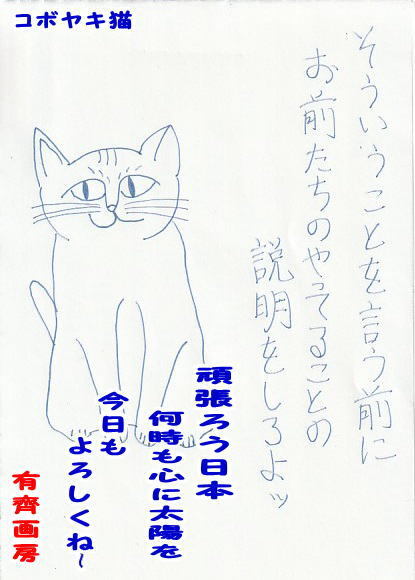 コボヤキ猫
そういうことを言う前に
お前たちのやてることの
説明をしろよッ
頑張ろう日本
何時も心に太陽を
今日も
よろしくね~
有齊画房